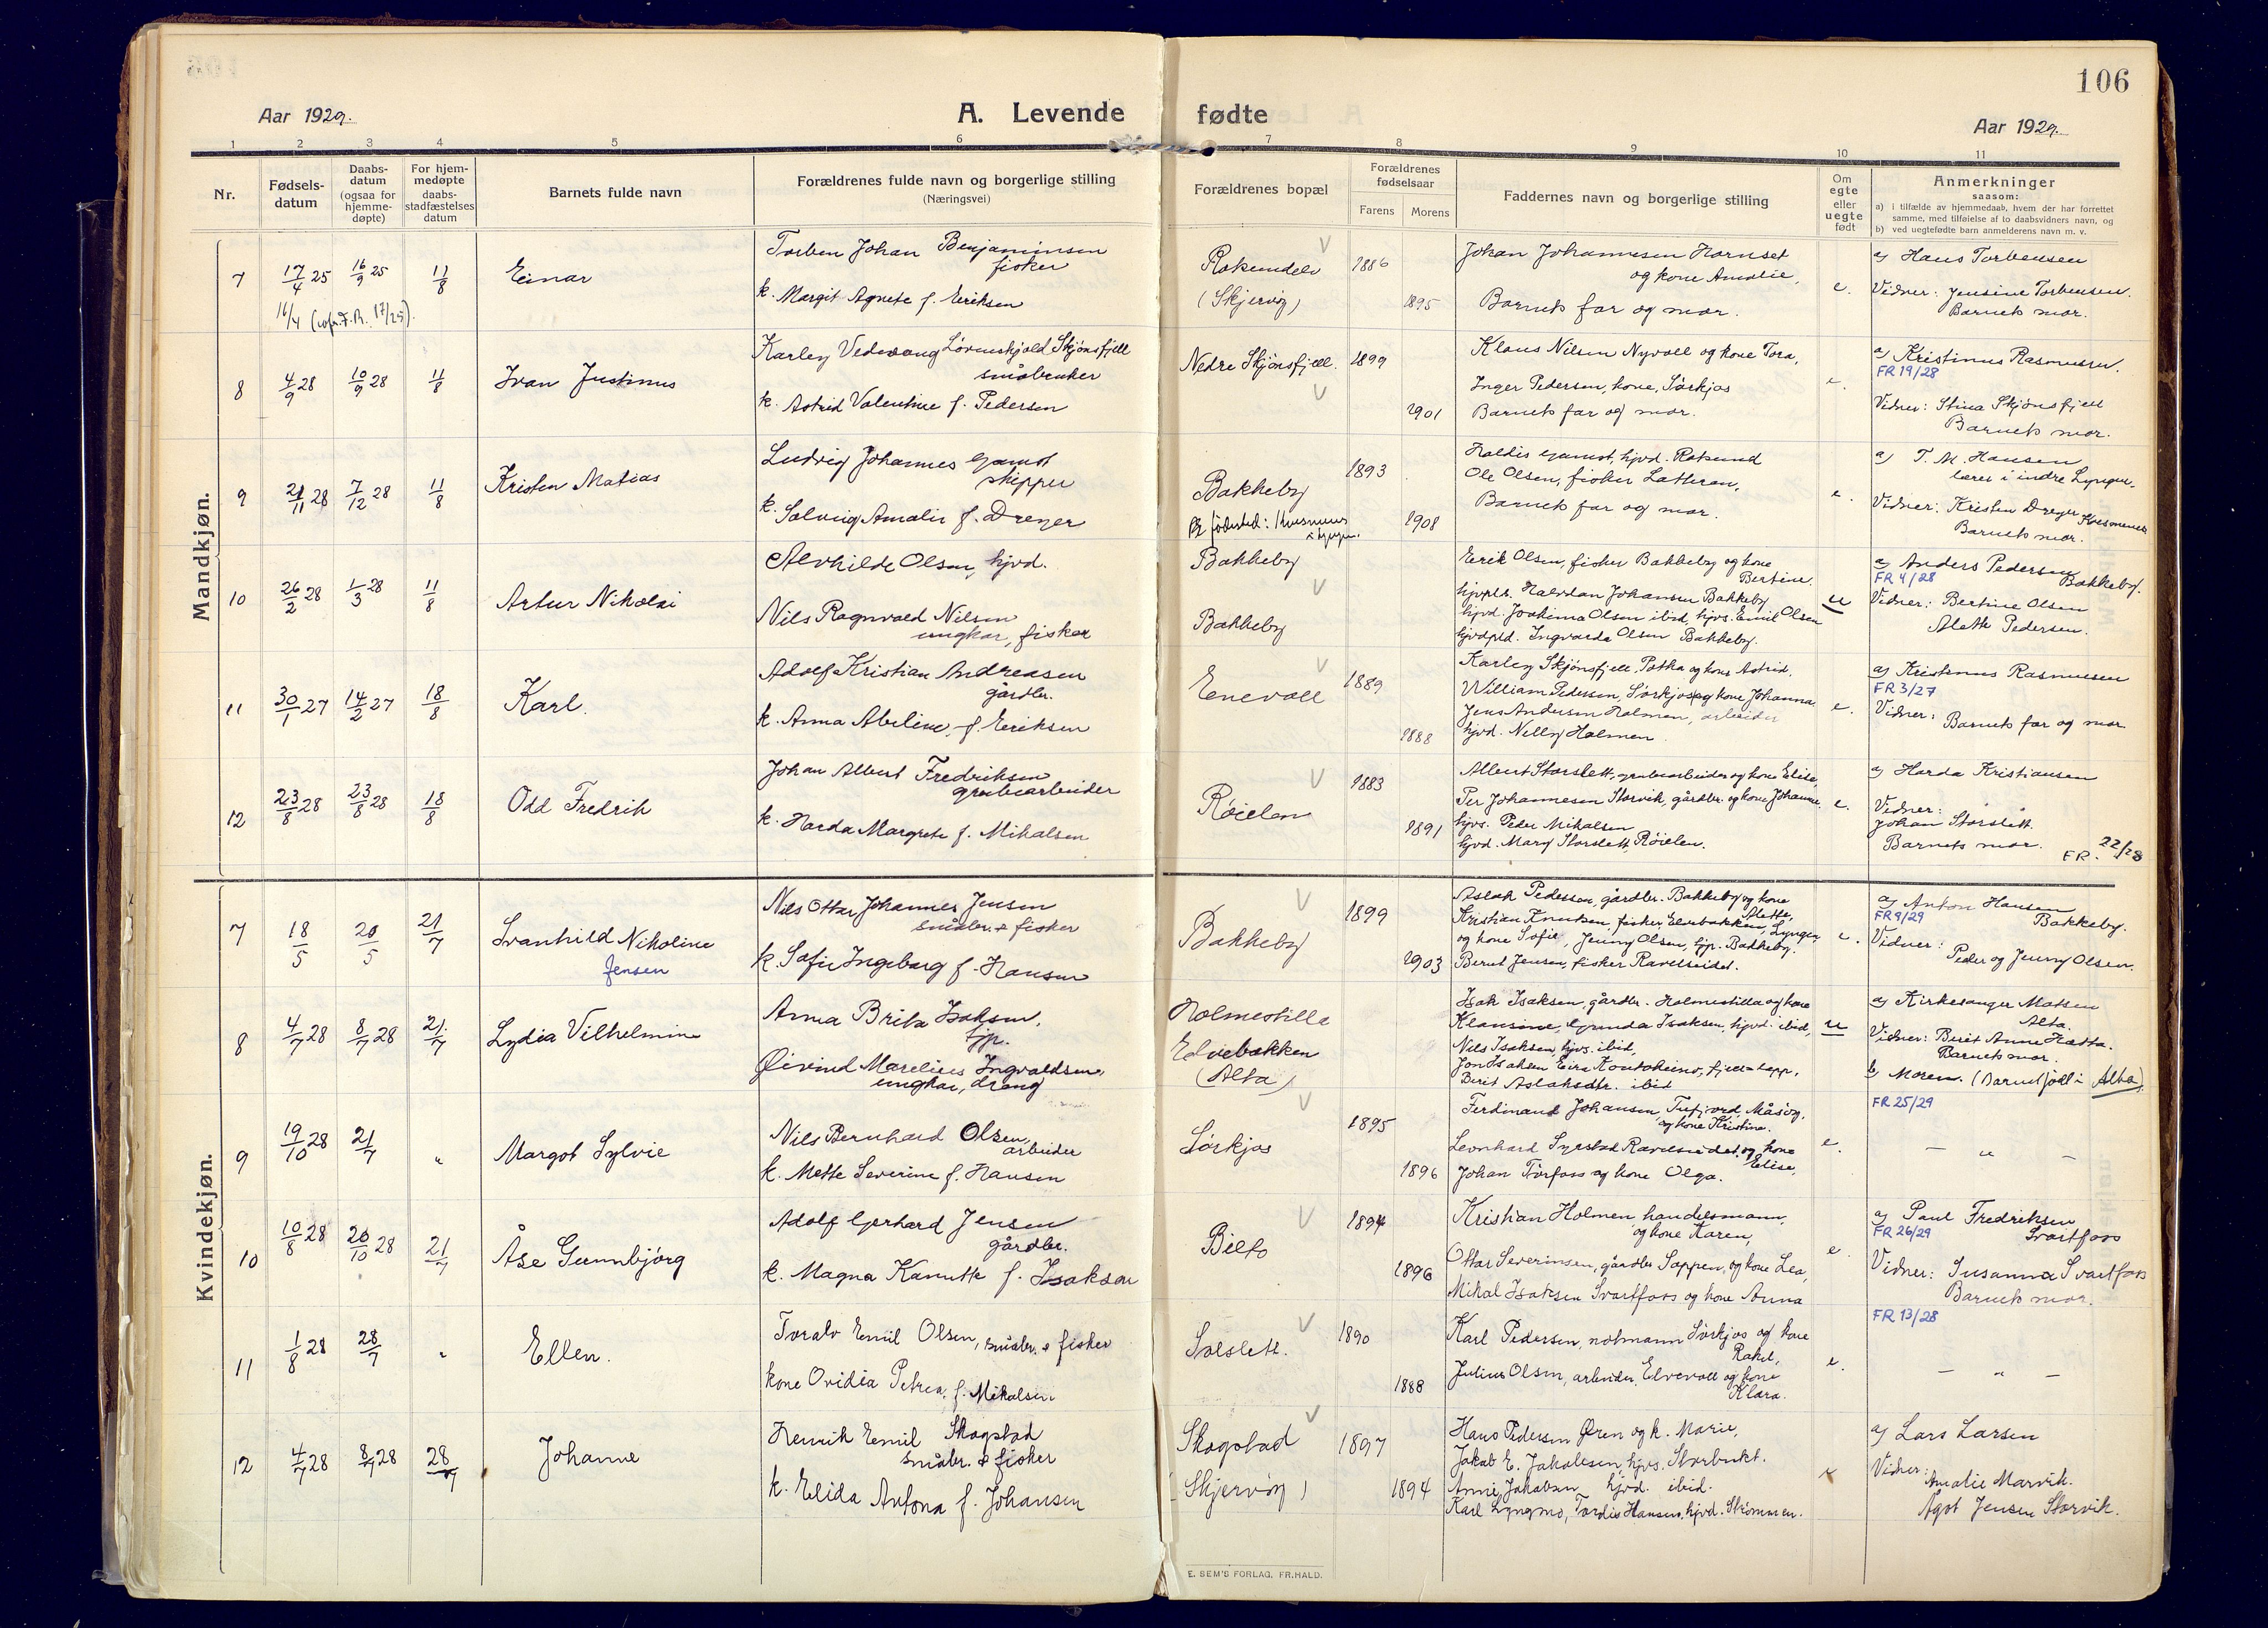 106
Aar 1929.
A. Levende fødte
Aar 1929.
1 2 3 4 5 6 7 8 9 10 11
Nr.
Fødsels-
datum
Daabs-
datum
(ogsaa for
hjemme-
døpte)
For hjem-
medøpte
daabs-
stadfæstelses
datum
Barnets fulde navn
Forældrenes fulde navn og borgerlige stilling
(Næringsvei)
Forældrenes bopæl
Forældrenes
fødselsaar
Farens Morens
Faddernes navn og borgerlige stilling
Om
egte
eller
uegte
født
Anmerkninger
saasom:
a) i tilfælde av hjemmedaab, hvem der har forrettet
samme, med tilføielse af to daabsvidners navn, og
b) ved uegtefødte barn anmelderens navn m. v.
Mandkjøn.
7 17/4 25 16/9 25 11/8 Einar
16/4 (
F.R. 17/25).
Torben Johan Benjaminsen
fisker
k. Margit Agnete f. Eriksen
(Skjervøy)
1886
1895
Johan Johannesen Hamset
og kone Amalie,
Barnets far og mor.
e.
a) Hans Torbensen
Vidner: Jensine Torbensen.
Barnets mor.
8 4/9 28 10/9 28 11/8 Ivan Justinus
Karley Vedevang Løvenskjold Skjønsfjell
småbruker
k. Astrid Valentine f. Pedersen
Nedre Skjønsfjell.
1899
1901
Klaus Nilsen Nyvoll og kone Tora,
Inger Pedersen, kone, Sørkjos
Barnets far og mor.
e.
a) Kristinus Rasmussen.
FR 19/28
Vidner: Stina Skjønsfjell
Barnets mor.
9 21/11 28 7/12 28 11/8 Kristen Matias
Ludvig Johannes Garnot
skipper
k. Solveig Amalie f. Dreyer
Bakkeby
fødested: Kvesmenes
1893
1908
Ole Olsen, fisker
Barnets far og mor.
e.
a) T. M. Hansen
lærer i indre Lyngen.
Vidner: Kristen Dreyer Kvesmenes
Barnets mor.
10 26/2 28 1/3 28 11/8 Artur Nikolai
Alvhilde Olsen, hjvd.
Nils Ragnvald Nilsen
ungkar, fisker
Bakkeby
Bakkeby
Eerik Olsen, fisker Bakkeby og kone
Bertine.
Halvdan Johansen Bakkeby
hjvd. Joakima Olsen ibid, hjvs. Emil Olsen
Ingvarda Olsen Bakkeby.
u
a) Anders Pedersen
FR 4/28 Bakkeby.
Vidner: Bertine Olsen
Alette Pedersen.
11 30/1 27 14/2 27 18/8 Karl.
Adolf Kristian Andreasen
gårdbr.
k. Anna Abeline, f. Eeriksen
Eenevoll
1889
1888
Karley Skjønsfjell, Potka og kone Astrid.
William Pedersen, Sørkjos og kone Johanna
Jens Andersen Holmen, arbeider
hjvd. Nelly Holmen
e.
a) Kristinus Rasmussen
FR 3/27
Vidner: Barnets far og mor
12 23/8 28 23/8 28 18/8 Odd Fredrik
Johan Albert Fredriksen
grubearbeider
k. Harda Margrete f. Mikalsen
Røielen
1883
1891
Albert Storslett, grubearbeider og kone Elise,
Per Johannesen Storvik, gårdbr. og kone Johanne
hjvs. Peder Mikalsen
hjvd. Mary Storslett, Røielen.
e.
a) Harda Kristiansen
Vidner:
Johan Storslett.
Barnets mor.
FR. 22/28
Kvindekjøn.
7 18/5 20/5 21/7 Svanhild Nikoline
Jensen
Nils Ottar Johannes Jensen
småbr. & fisker
k. Sofie Ingeborg f. Hansen
Bakkeby
1899
1903
Aslak Pedersen, gårdbr. Bakkeby og kone
Alette,
Kristian Knutsen, fisker, Elvebakken, Lyngen
og kone Sofie, Jenny Olsen, tjp. Bakkeby.
Bernt Jensen, fisker Ravelseidet.
e.
a) Anton Hansen
FR 9/29 Bakkeby.
Vidner:
Peder og Jenny Olsen.
8 4/7 28 8/7 28 21/7 Lydia Vilhelmine
Anna Brita Isaksen,
tjp.
Øivind Marelius Ingvaldsen,
ungkar, dreng
Holmestilla
Elvebakken
(Alta)
Isak Isaksen, gårdbr. Holmestilla og kone
Klausine, Gunda Isaksen, hjvd. ibid,
Nils Isaksen, hjvs. ibid,
Jon Isaksen Eira Kautokeino, fjell-lapp,
Berit Aslaksdtr. ibid
u
a) Kirkesanger Matsen
Alta.
Vidner: Berit Anne Hætta.
Barnets mor.
b) Moren. (Barnet født i Alta)
9 19/10 28 21/7 „ Margot Sylvie
Nils Bernhard Olsen,
arbeider
k. Mette Severine f. Hansen
Sørkjos
1895
1896
Ferdinand Johansen, Tufjord, Måsøy,
og kone Kristine.
Leonhard Syrstad Ravelseidet, og kone
Elise,
Johan Torfoss og kone Olga.
e.
FR 25/29
— „ —
10 10/8 28 20/10 28 21/7 Åse Gunnbjørg
Adolf Gerhard Jensen
gårdbr.
k. Magna Kanutte f. Isaksen
Bilto
1894
1896
Kristian Holmen handelsmann,
og kone Karen,
Ottar Severinsen, gårdbr Sappen, og kone Lea,
Mikal Isaksen Svartfoss og kone Anna
e.
a) Paul Fredriksen
FR 26/29 Svartfoss
Vidner: Susanna Svartfoss
Barnets mor.
11 1/8 28 28/7 „ Ellen.
Toralv Emil Olsen, småbr. & fisker
kone Ovidia Petrea, f. Mikalsen
Solslett.
1890
1888
Karl Pedersen, notmann Sørkjos og kone
Rakel,
Julius Olsen, arbeider, Elvevoll og kone
Klara.
e.
FR 13/28
— „ —
12 4/7 28 8/7 28 28/7 Johanne
Henrik Emil Skogstad
småbr. & fisker
k. Elida Antona f. Johansen
Skogstad
(Skjervøy)
1897
1894
Hans Pedersen Øren og k. Marie,
Jakob E. Jakobsen, hjvs. Storbukt.
Anni Jakobsen hjvd. ibid.
Karl Lyngmo, Tordis Hansen, hjvd. Strømmen.
a) Lars Larsen
Vidner:
Amalie Marvik.
Agot Jensen Storvik.
E. SEM'S FORLAG, FR.HALD.